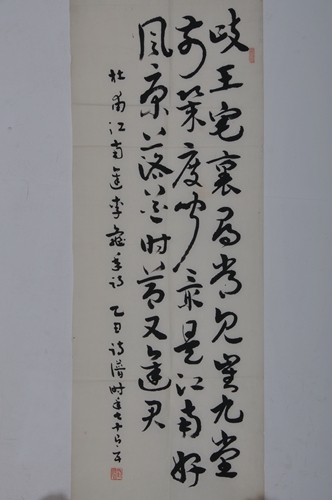 歧王宅裏尋常見崔九堂
前幾度聞最是江南好
風景落花時節又逢君
杜甫江南逢李龜年诗 乙丑 诗潜时年七十